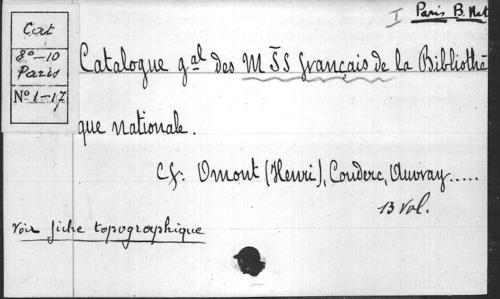 I Paris B. Nat
Cat
8º-10
Paris
Nº 1-17
Catalogue gal des MSS français de la Bibliothè
que nationale.
Cf: Omont (Henri), Couderc, Auvray.....
13 vol.
Voir fiche topographique